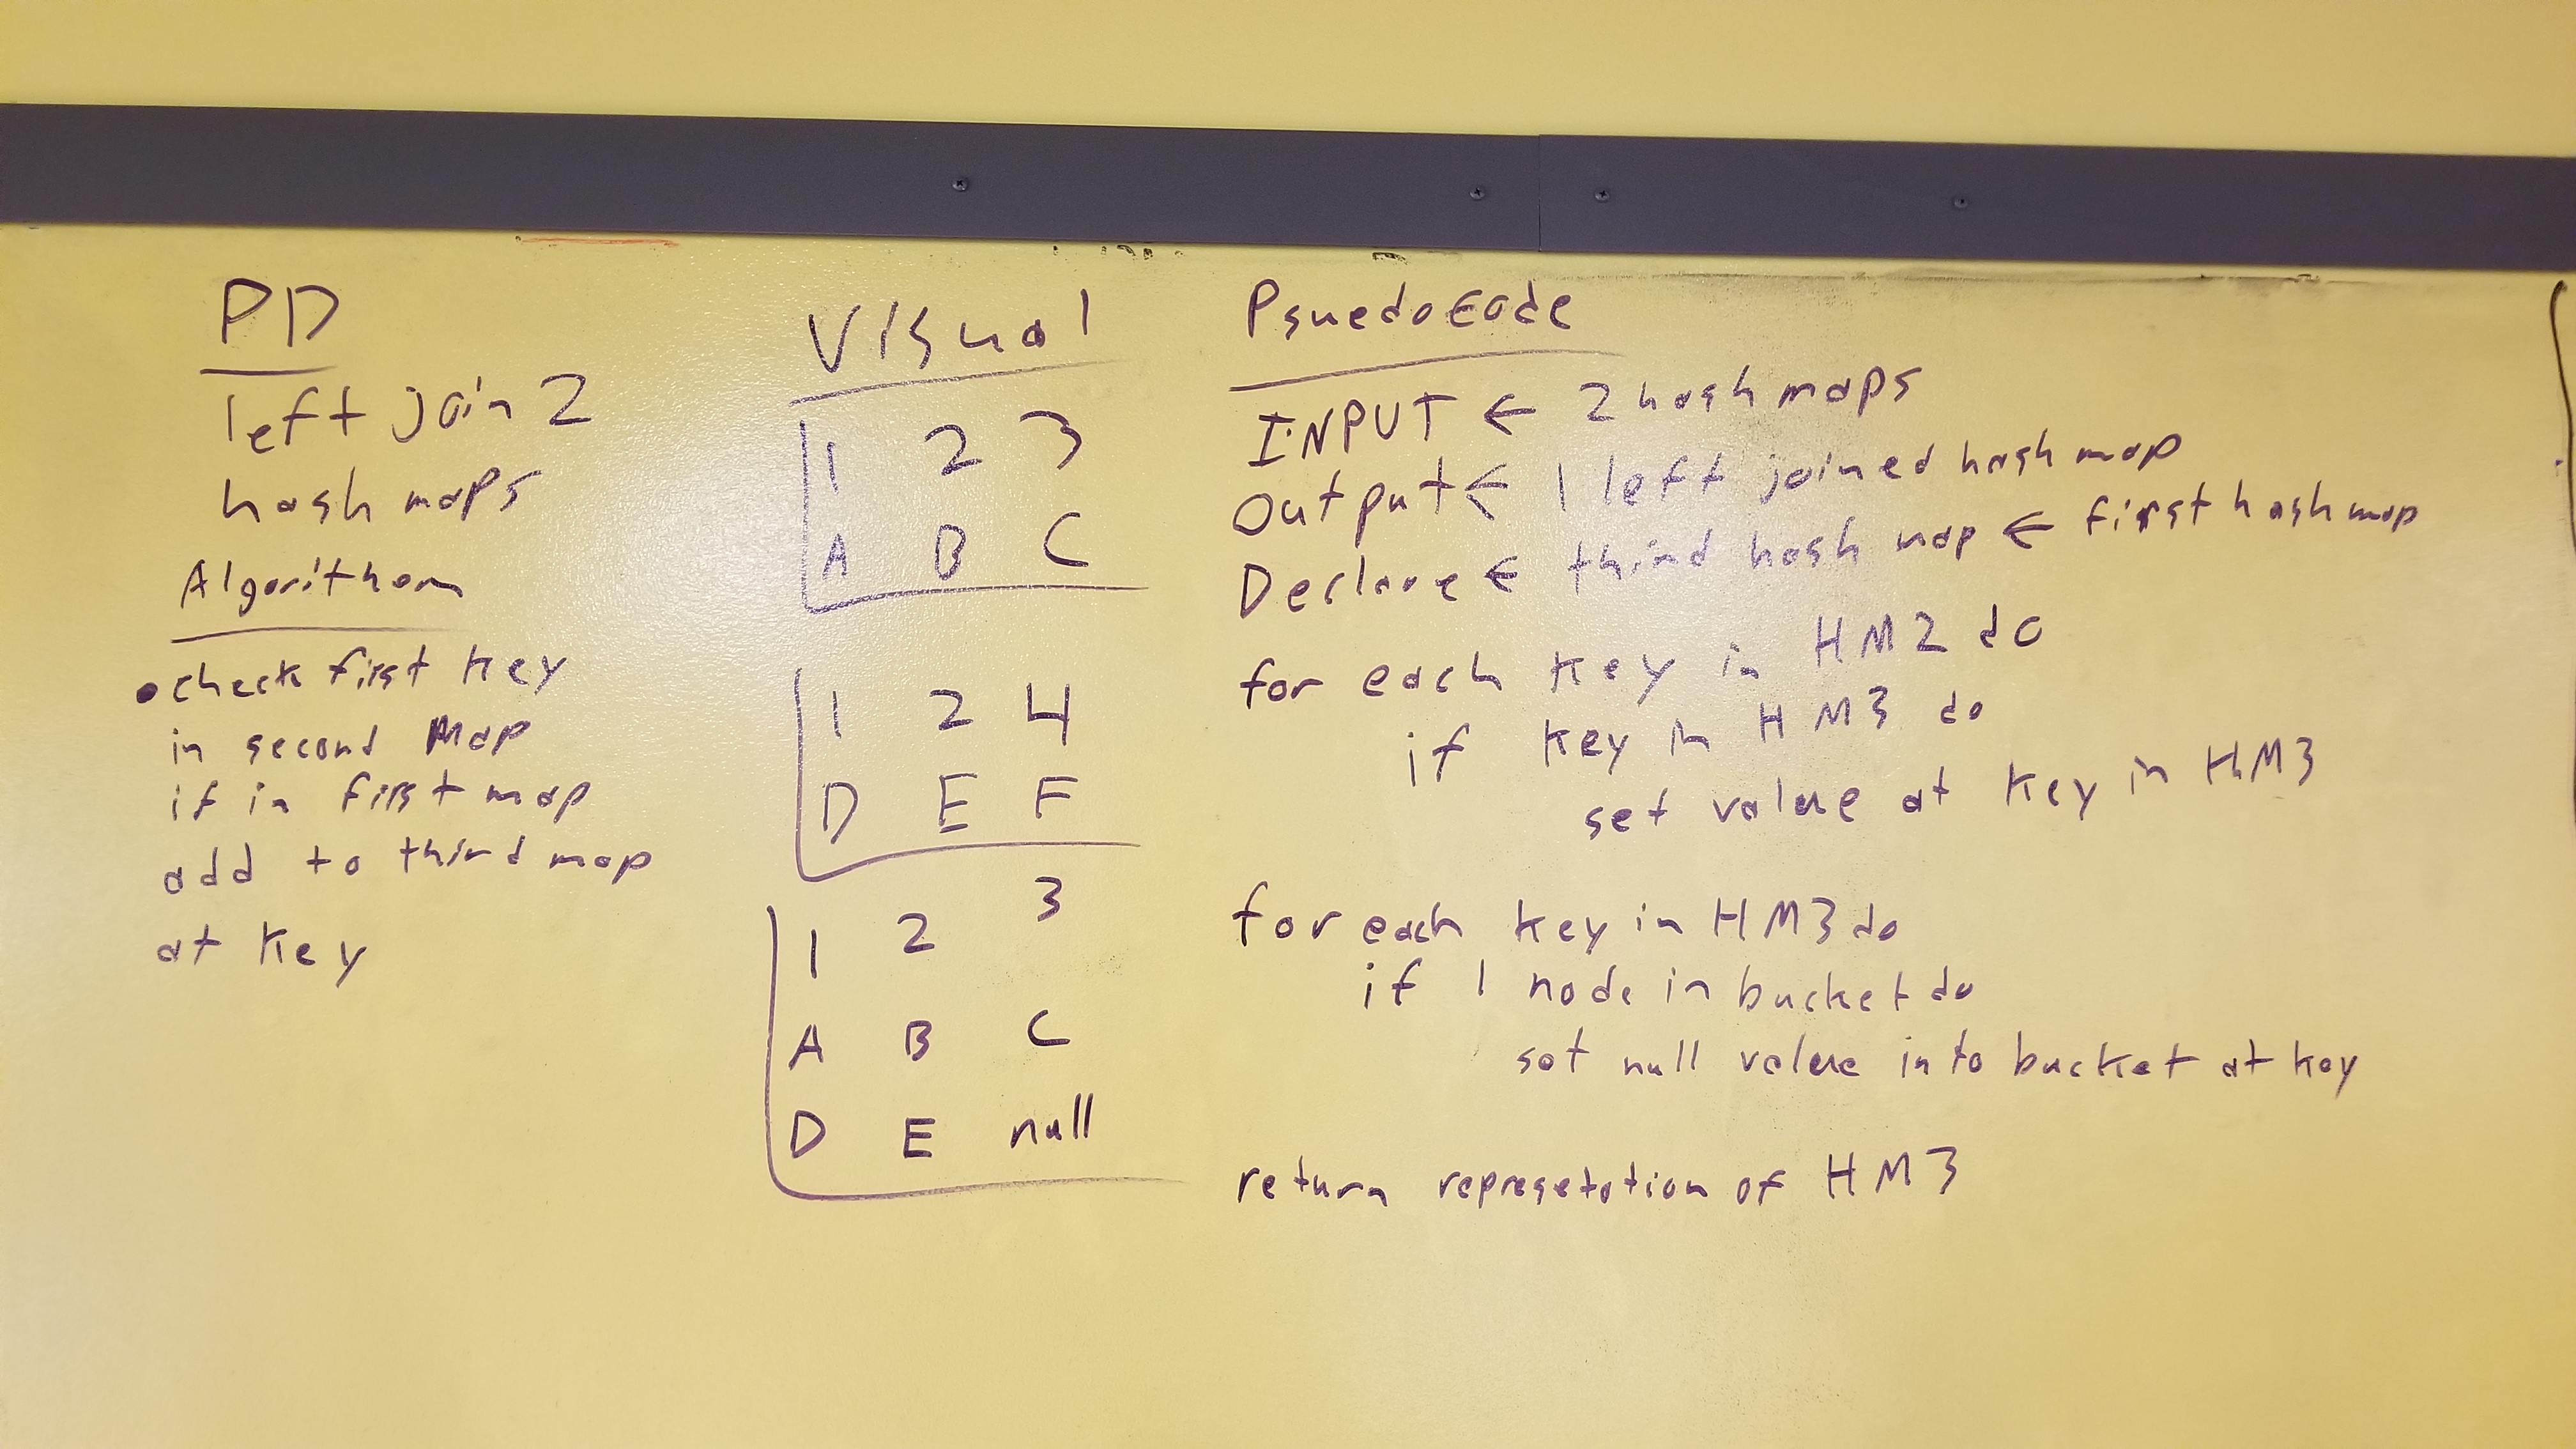 PD
left join 2
hash maps
Algorithom
• check first key
in second Map
if in first map
add to third map
at key
Visual
1 2 3
A B C
1 2 4
D E F
1 2 3
A B C
D E null
Psuedocode
INPUT ← 2 hash maps
Output ← 1 left joined hash map
Declare ← third hash map ← first hash map
for each key in HM2 do
if key in HM3 do
set value at key in HM3
for each key in HM3 do
if 1 node in bucket do
set null value into bucket at key
return represetation of HM3